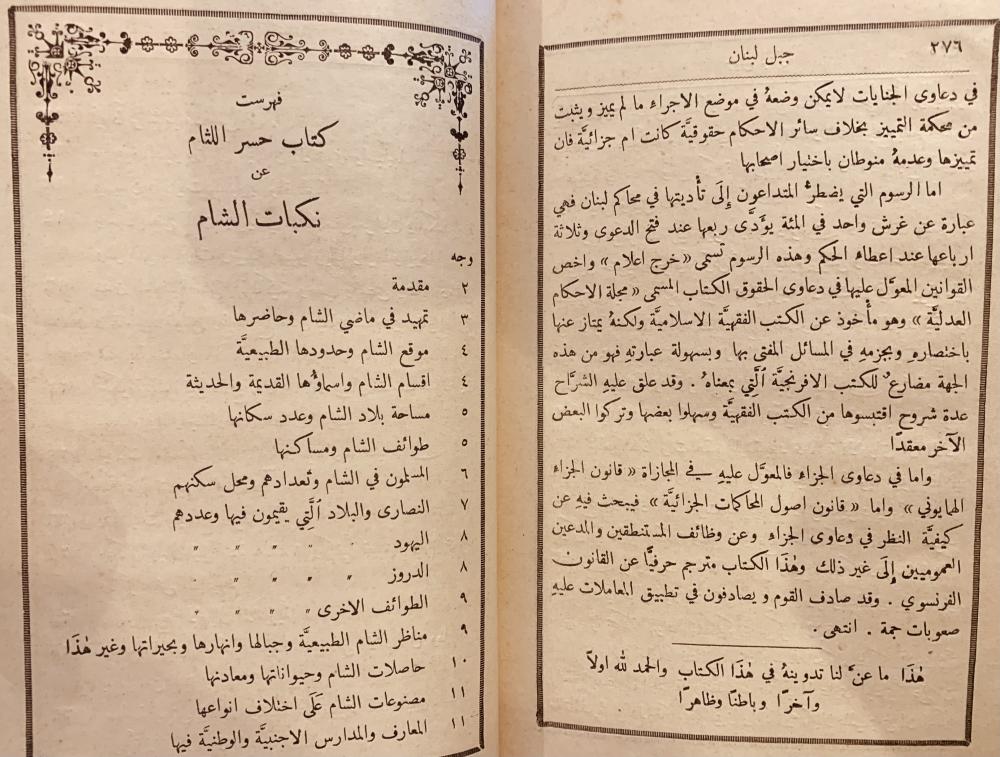 ٢٧٦
جبل لبنان
في دعاوى الجنايات لا يمكن وضعهُ في موضع الاجراء ما لم يميز ويثبت
من محكمة التمييز بخلاف سائر الاحكام حقوقيَّة كانت ام جزائيَّة فان
تمييزها وعدمهُ منوطان باختيار اصحابها
اما الرسوم التي يضطرُّ المتداعون إِلَى تأْديتها في محاكم لبنان فهي
عبارة عن غرش واحد في المئة يؤَدَّى ربعها عند فتح الدعوى وثلاثة
ارباعها عند اعطاء الحكم وهذه الرسوم تسمى «خرج اعلام» واخص
القوانين المعوَّل عليها في دعاوى الحقوق الكتاب المسمى «مجلة الاحكام
العدليَّة» وهو مأْخوذ عن الكتب الفقهيَّة الاسلاميَّة ولكنهُ يمتاز عنها
باختصارهِ وبجزمهِ في المسائل المفتى بها وبسهولة عبارتهِ فهو من هذه
الجهة مضارعٌ للكتب الافرنجيَّة ٱلَّتِي بمعناهُ . وقد علق عليهِ الشرَّاح
عدة شروح اقتبسوها من الكتب الفقهيَّة وسهلوا بعضها وتركوا البعض
الآخر معقدًا
واما في دعاوى الجزاء فالمعوَّل عليهِ في المجازاة «قانون الجزاء
الهمايوني» واما «قانون اصول المحاكمات الجزائيَّة» فيبحث فيهِ عن
كيفيَّة النظر في دعاوى الجزاء وعن وظائف المستنطقين والمدعين
العموميين إِلَى غير ذلك وهٰذَا الكتاب مترجم حرفيًّا عن القانون
الفرنسوي . وقد صادف القوم ويصادفون في تطبيق المعاملات عليهِ
صعوبات جمة . انتهى .
هٰذَا ما عنَّ لنا تدوينهُ في هٰذَا الكتاب والحمد لله اولاً
وآخرًا وباطنًا وظاهرًا
فهرست
كتاب حسر اللثام
عن
نكبات الشام
وجه
٢ مقدمة
٣ تمهيد في ماضي الشام وحاضرها
٤ موقع الشام وحدودها الطبيعيَّة
٤ اقسام الشام واسماؤُها القديمة والحديثة
٥ مساحة بلاد الشام وعدد سكانها
٥ طوائف الشام ومساكنها
٦ المسلمون في الشام وتعدادهم ومحل سكنهم
٧ النصارى والبلاد ٱلَّتِي يقيمون فيها وعددهم
٨ اليهود " " " "
٨ الدروز " " " "
٩ الطوائف الاخرى " " " "
٩ مناظر الشام الطبيعيَّة وجبالها وانهارها وبحيراتها وغير هٰذَا
١٠ حاصلات الشام وحيواناتها ومعادنها
١١ مصنوعات الشام عَلَى اختلاف انواعها
١١ المعارف والمدارس الاجنبيَّة والوطنيَّة فيها